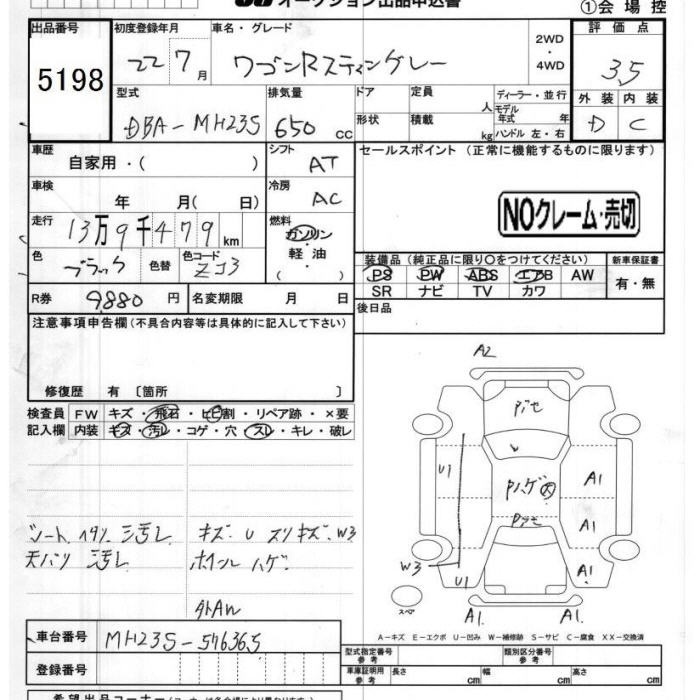 オークション出品申込書
①会場控
出品番号
5198
初度登録年月
22 7月
車名・グレード
ワゴンRスティングレー
2WD
・
4WD
評価点
3.5
外装 内装
D C
型式
DBA-MH23S
排気量
650 cc
ドア
定員
人
形状
積載
kg
ディーラー・並行
モデル
年式 年
ハンドル 左・右
車歴
自家用・( )
シフト
AT
セールスポイント (正常に機能するものに限ります)
車検
年 月( 日)
冷房
AC
NOクレーム・売切
走行
13万9千479km
燃料
ガソリン
・
軽油
( )
色
ブラック
色替
色コード
ZJ3
装備品(純正品に限り○をつけてください)
PS PW ABS エアB AW
SR ナビ TV カワ
新車保証書
有・無
R券 9880円
名変期限 月 日
後日品
注意事項申告欄(不具合内容等は具体的に記入して下さい)
修復歴 有 〔箇所 〕
検査員
記入欄
FW キズ・飛石・ヒビ割・リペア跡・×要
内装 キズ・汚レ・コゲ・穴・スレ・キレ・破レ
シート ヘタリ シミ汚レ
天バリ シミ汚レ
キズ U スリキズ W3
ホイール ハゲ
外AW
A2
U1
A1
A1
W3
U1
A1
スペ
A1.
A1.
A-キズ E-エクボ U-凹み W-補修跡 S-サビ C-腐食 XX-交換済
車台番号
MH23S-576365
登録番号
型式指定番号
参考
類別区分番号
参考
車庫証明用
参考
長さ cm
幅 cm
高さ cm
希望出品コーナー